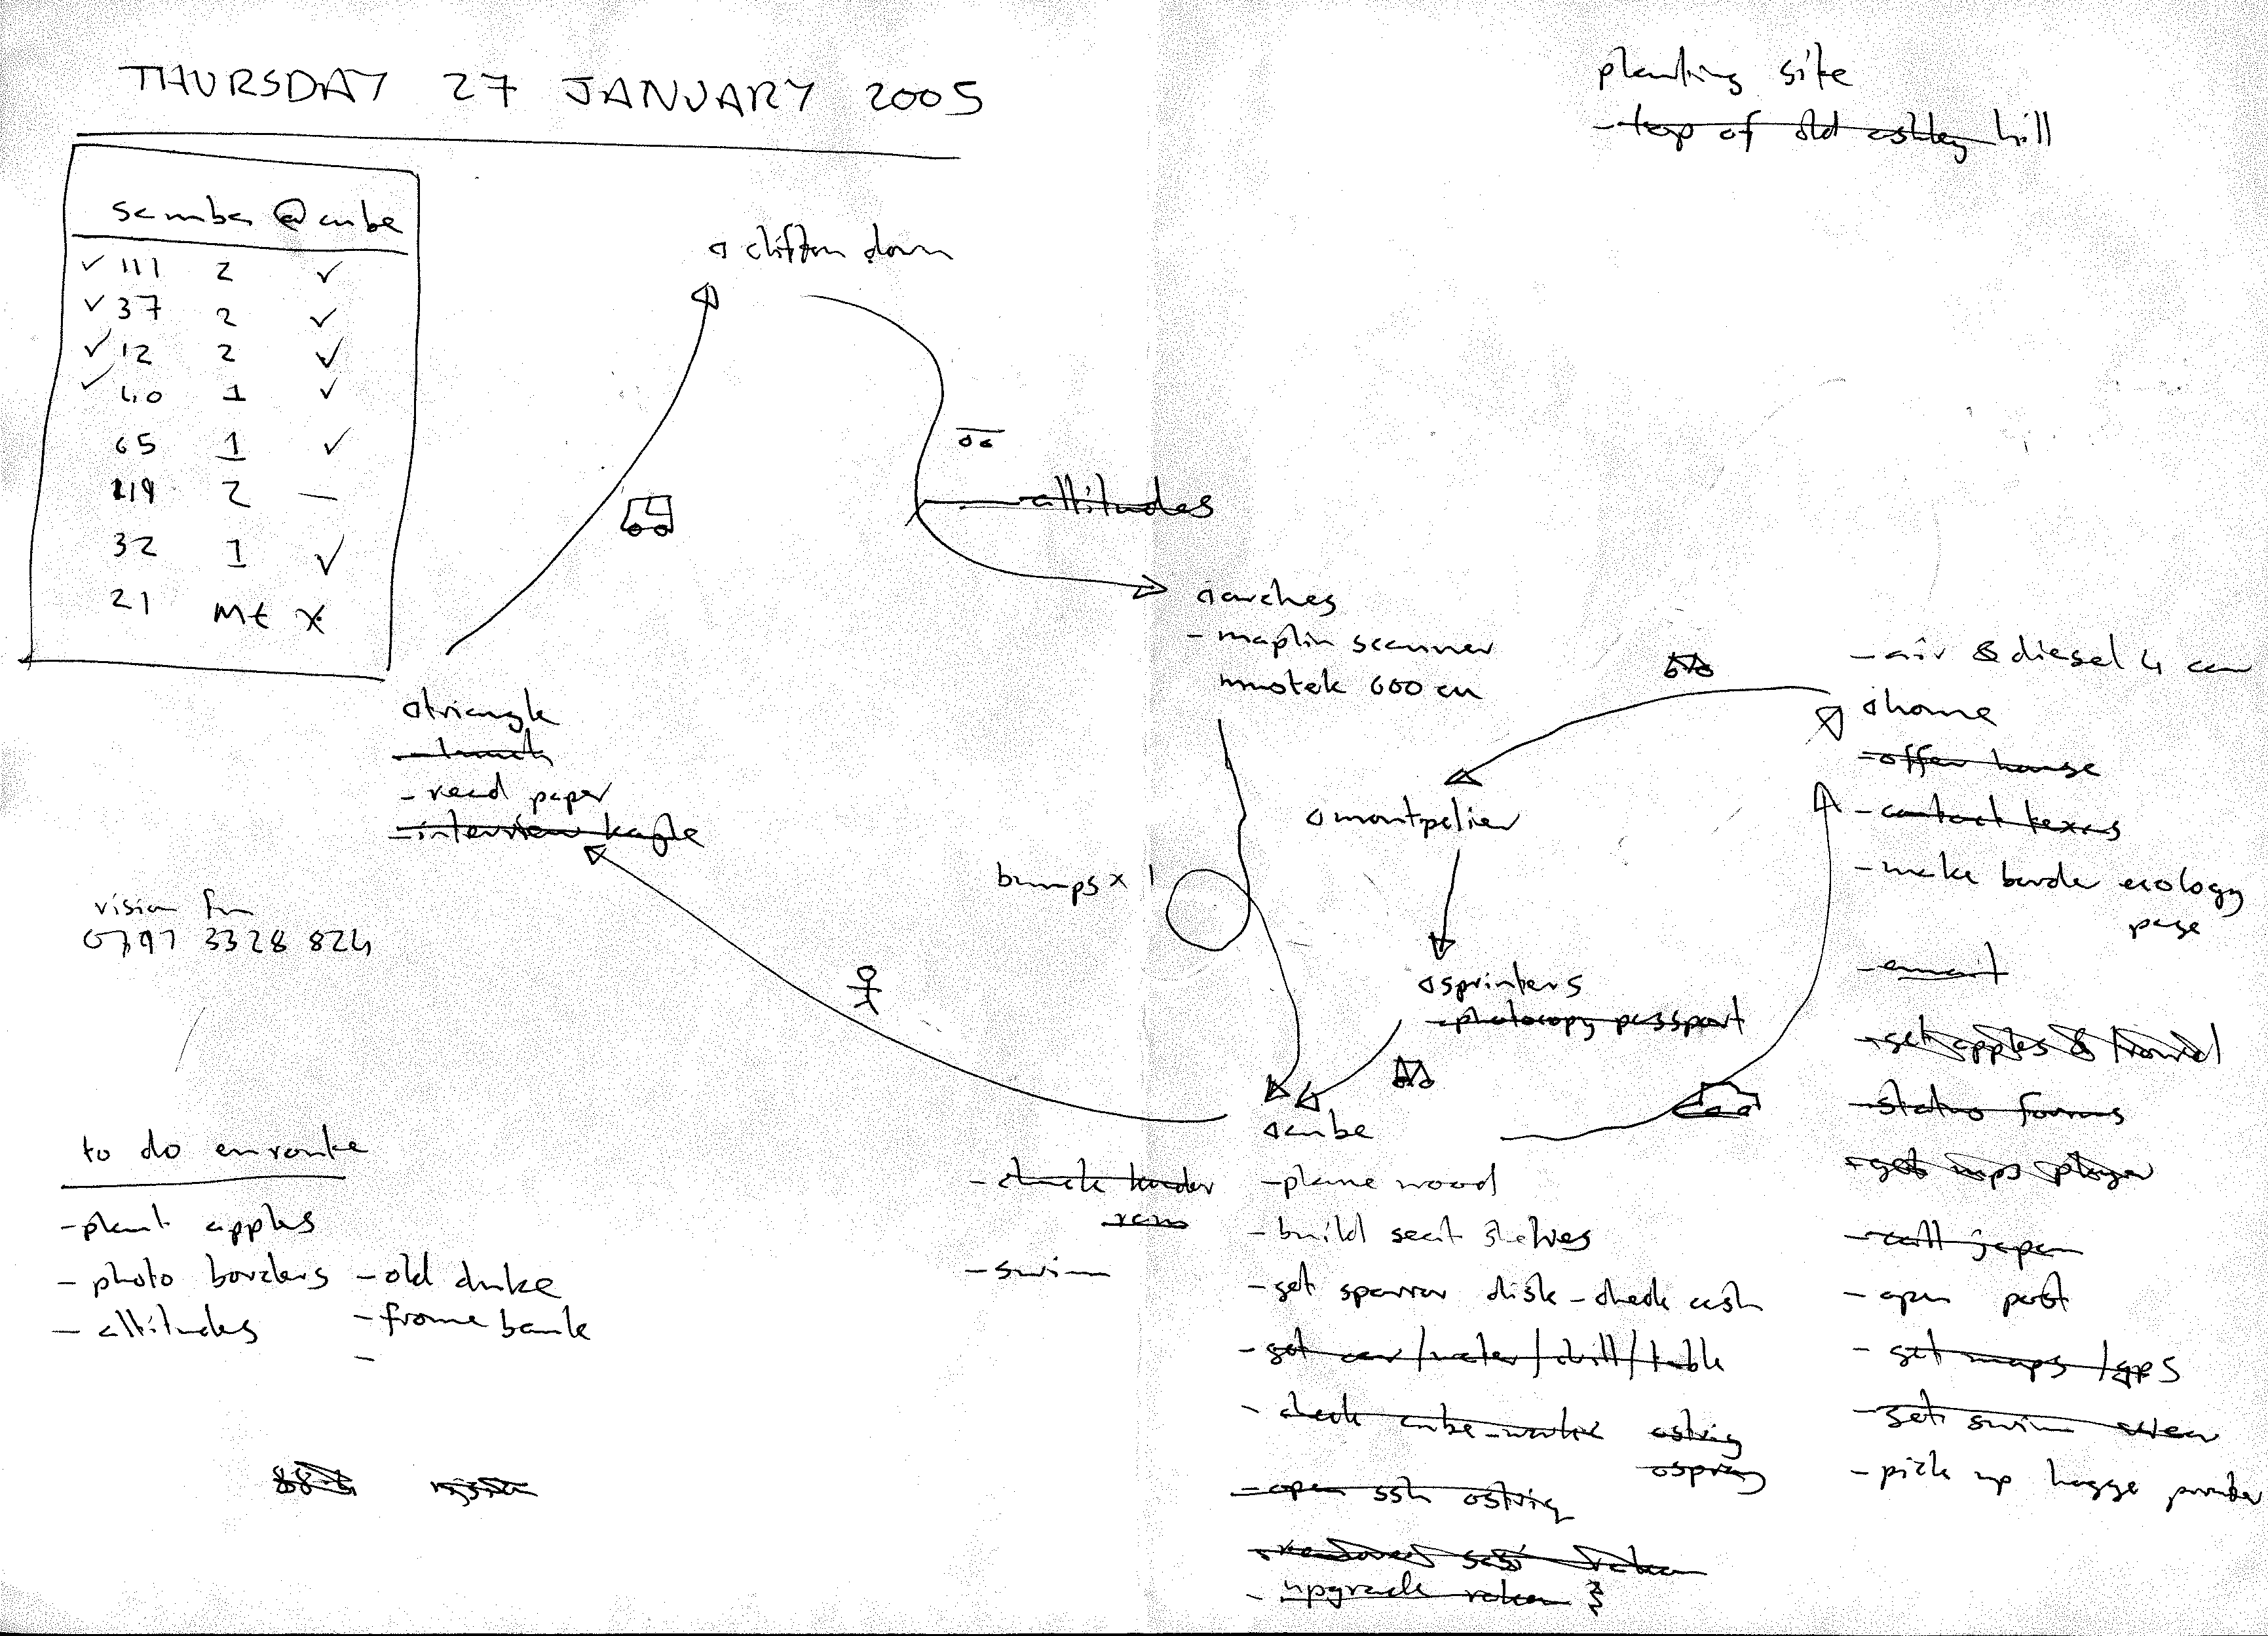 THURSDAY 27 JANUARY 2005
planting site
- top of old ashley hill
samba @ cube
✓ 111 2 ✓
✓ 37 2 ✓
✓ 12 2 ✓
✓ 40 1 ✓
65 1 ✓
119 2 —
32 1 ✓
21 Mt X
clifton down
- attitudes
arches
- maplin scanner
mustek 600 cu
triangle
- lunch
- read paper
- interview
vision fm
0797 3328 824
bumps x 1
montpelier
sprinters
- photocopy passport
- air & diesel 4 car
home
- offer house
- contact texas
- make border ecology
page
- email
- get apples & trowel
- status forms
- get mp3 player
- call japan
- open post
- get maps / gps
- get swim wear
- pick up hagge powder
cube
- check border
- swim
- plane wood
- build seat shelves
- get sparrow disk - check cash
- get car / water / drill / table
- check cube-
ostrig
osprey
- open ssh ostrig
- upgrade
to do enroute
- plant apples
- photo borders
- attitudes
- old duke
- frome bank
-